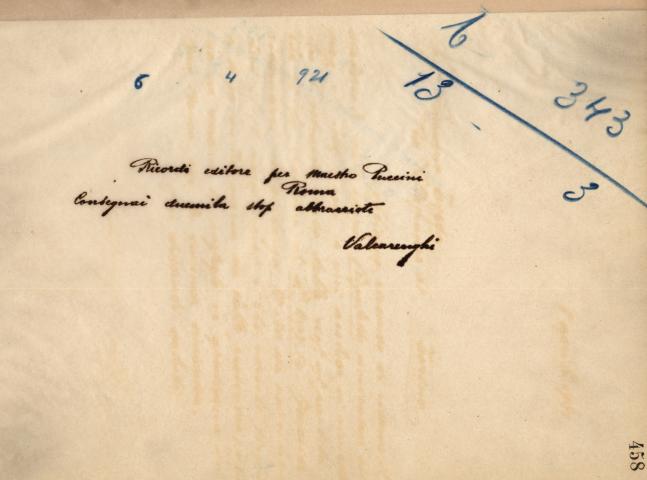 6 4 921
6
13
343
3
Ricordi editore per maestro Puccini
Roma
Consegnai duemila stop abbraccioti
Valcarenghi
458